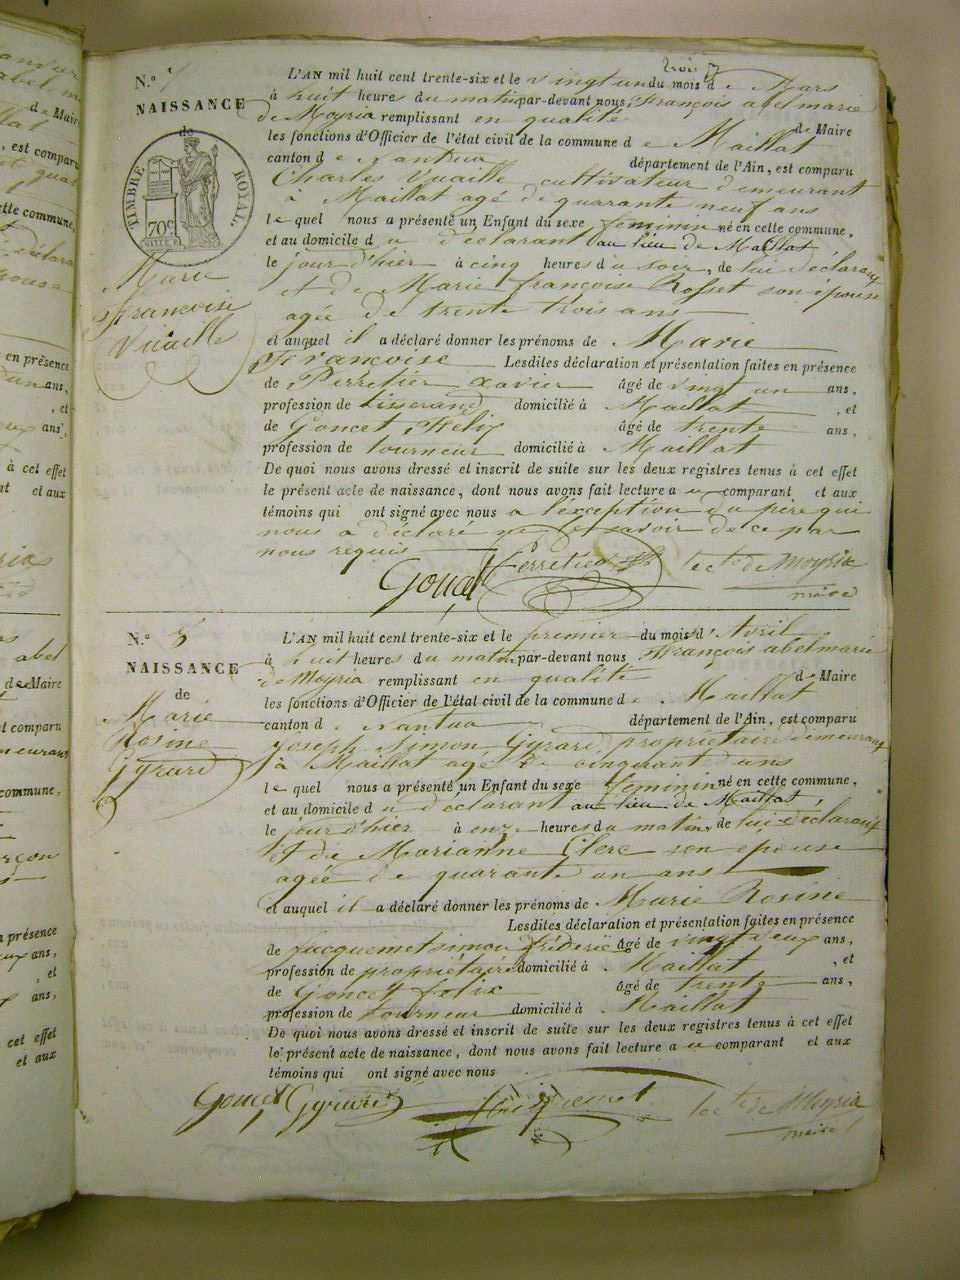 trois
N.º 4
NAISSANCE
de
TIMBRE ROYAL
70c
Marie
Françoise
Vuaille
L'AN mil huit cent trente-six et le vingt un du mois d e Mars
à huit heures du matin par-devant nous, François abel marie
de Moyria remplissant en qualité de Maire
les fonctions d'Officier de l'état civil de la commune d e Maillat
canton d e Nantua département de l'Ain, est comparu
Charles Vuaille cultivateur demeurant
à Maillat agé de quarante neuf ans
le quel nous a présenté un Enfant du sexe feminin né en cette commune,
et au domicile d u déclarant au lieu de Maillat
le jour d'hier à cinq heures du soir, de lui déclarant
et de Marie françoise Rosset son épouse
agée de trente trois ans
et auquel il a déclaré donner les prénoms de Marie
Françoise Lesdites déclaration et présentation faites en présence
de Perretier Xavier âgé de vingt un ans,
profession de tisserand domicilié à Maillat , et
de Goncet Félix âgé de trente ans,
profession de tourneur domicilié à Maillat
De quoi nous avons dressé et inscrit de suite sur les deux registres tenus à cet effet
le présent acte de naissance, dont nous avons fait lecture a u comparant et aux
témoins qui ont signé avec nous a l'exception du père qui
nous a déclaré ne le savoir de ce par
nous requis
Goncet Perretier te cte de Moyria
maire
N.º 5
NAISSANCE
de
Marie
Rosine
Gyrard
L'AN mil huit cent trente-six et le premier du mois d' Avril
à huit heures du matin par-devant nous François abel marie
de Moyria remplissant en qualité de Maire
les fonctions d'Officier de l'état civil de la commune d e Maillat
canton d e Nantua département de l'Ain, est comparu
Joseph Simon Gyrard, propriétaire demeurant
à Maillat agé de cinquant ans
le quel nous a présenté un Enfant du sexe feminin né en cette commune,
et au domicile d u déclarant au lieu de Maillat,
le jour d'hier à onze heures du matin, de lui déclarant
et de Marianne Clerc son epouse
agée de quarante un ans
et auquel il a déclaré donner les prénoms de Marie Rosine
Lesdites déclaration et présentation faites en présence
de Jacquemet simon fréderic âgé de vingt deux ans,
profession de propriétaire domicilié à Maillat , et
de Goncet felix âgé de trente ans,
profession de tourneur domicilié à Maillat
De quoi nous avons dressé et inscrit de suite sur les deux registres tenus à cet effet
le présent acte de naissance, dont nous avons fait lecture a u comparant et aux
témoins qui ont signé avec nous
Goncet Gyrard te cte de Moyria
maire